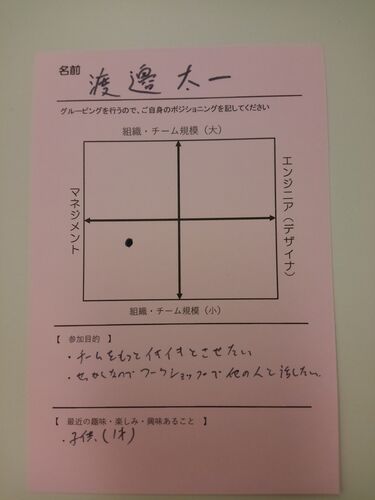 名前 渡邊太一
グルーピングを行うので、ご自身のポジショニングを記してください
組織・チーム規模（大）
マネジメント
エンジニア（デザイナ）
組織・チーム規模（小）
【 参加目的 】
・チームをもっとイキイキとさせたい
・せっかくなのでワークショップで他の人と話したい。
【 最近の趣味・楽しみ・興味あること 】
・子供（1才）